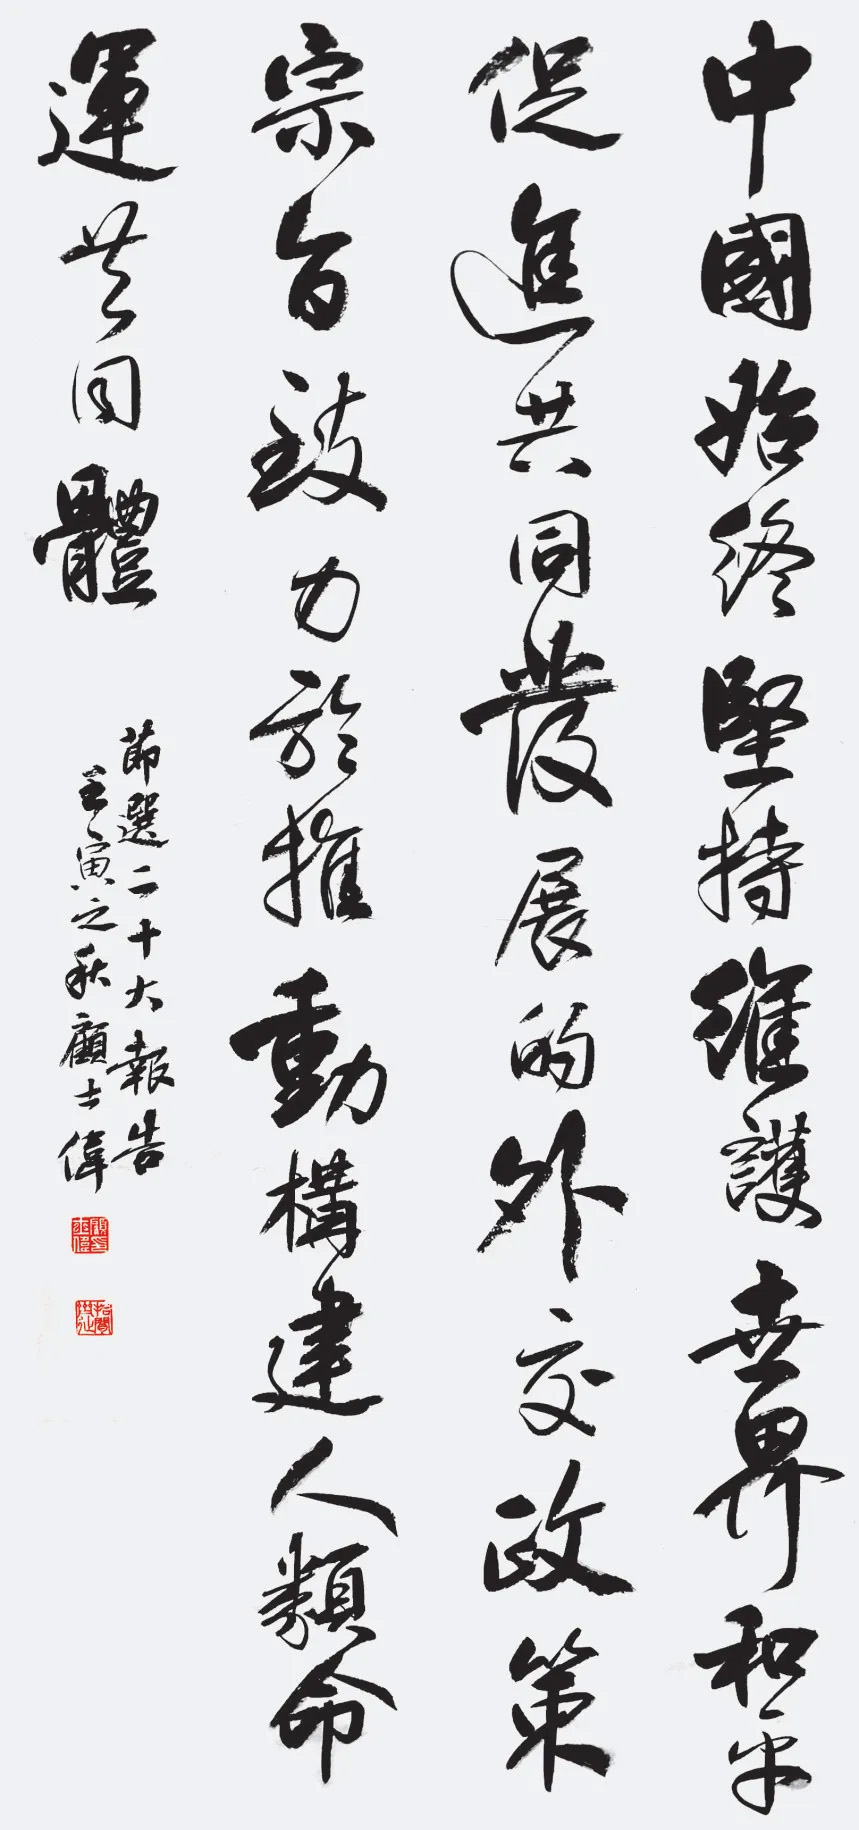 中國始終堅持維護世界和平
促進共同發展的外交政策
宗旨致力於推動構建人類命
運共同體
節選二十大報告
壬寅之秋顧士偉